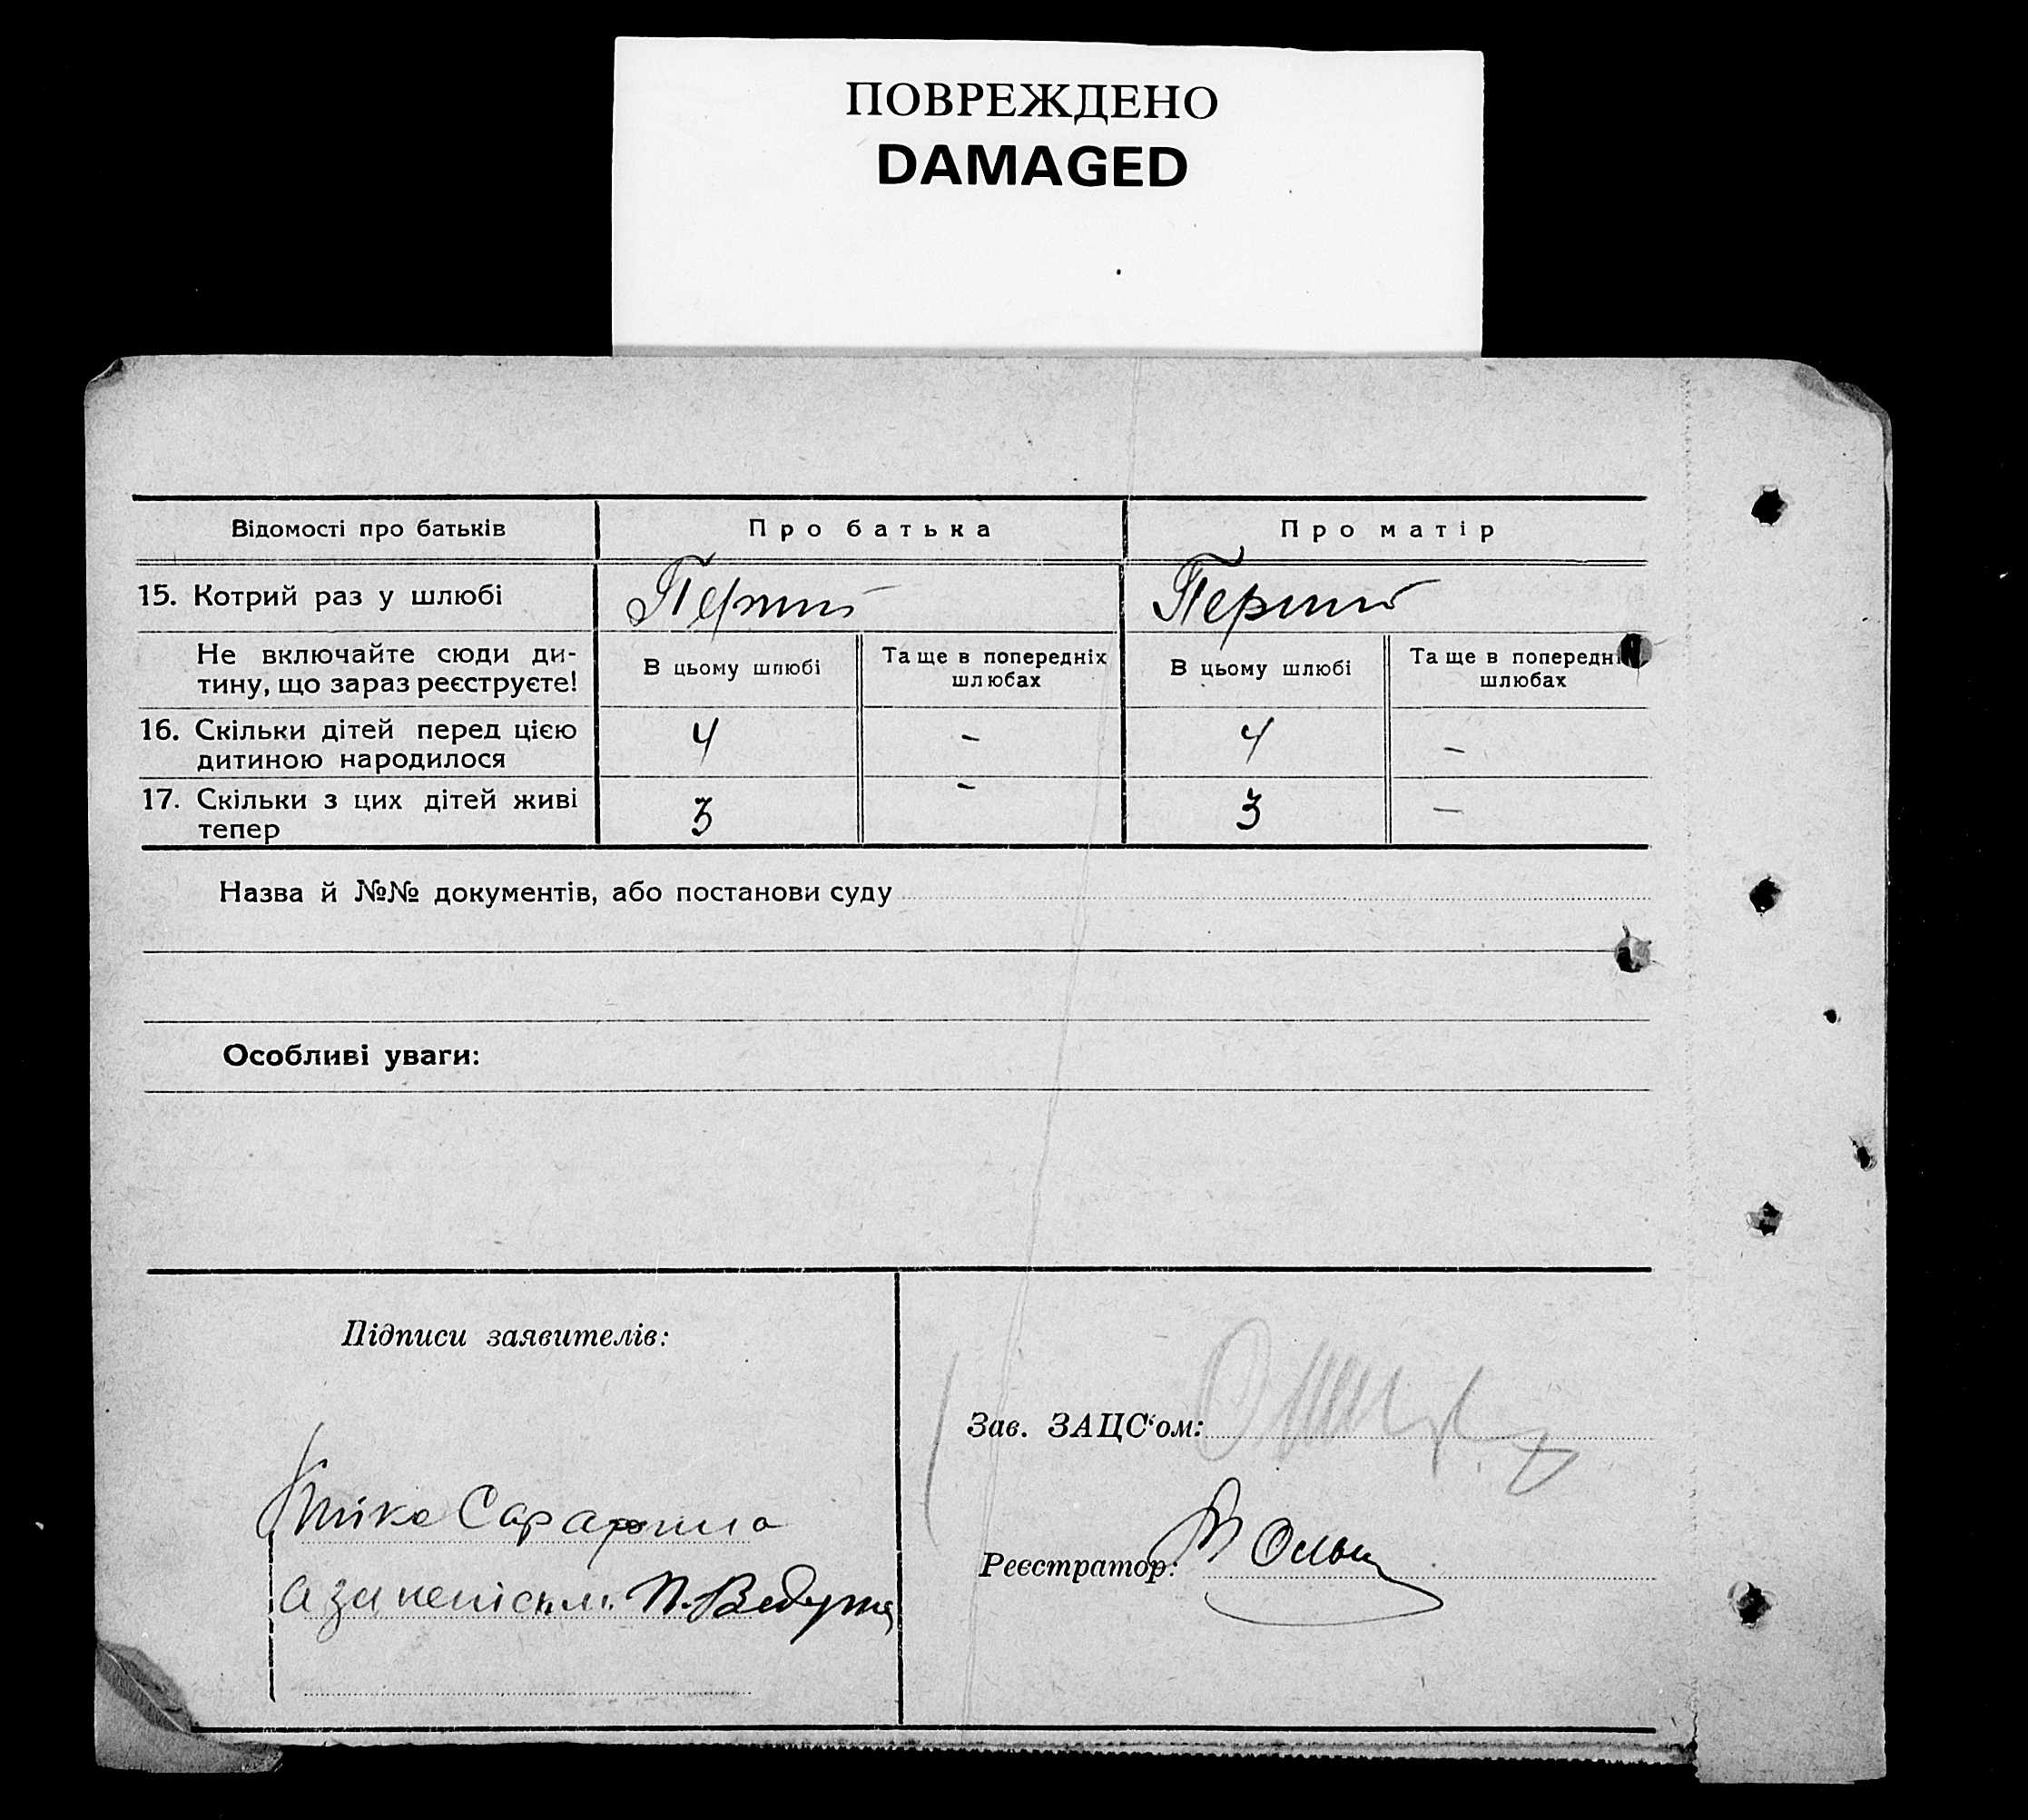 ПОВРЕЖДЕНО
DAMAGED
Відомості про батьків
Про батька
Про матір
15. Котрий раз у шлюбі
Перший
Перший
Не включайте сюди ди-
тину, що зараз реєструєте!
В цьому шлюбі
Та ще в попередніх
шлюбах
В цьому шлюбі
Та ще в попередні
шлюбах
16. Скільки дітей перед цією
дитиною народилося
4
–
4
–
17. Скільки з цих дітей живі
тепер
3
–
3
–
Назва й №№ документів, або постанови суду
Особливі уваги:
Підписи заявителів:
Зав. ЗАЦС‘ом:
Реєстратор:
а за